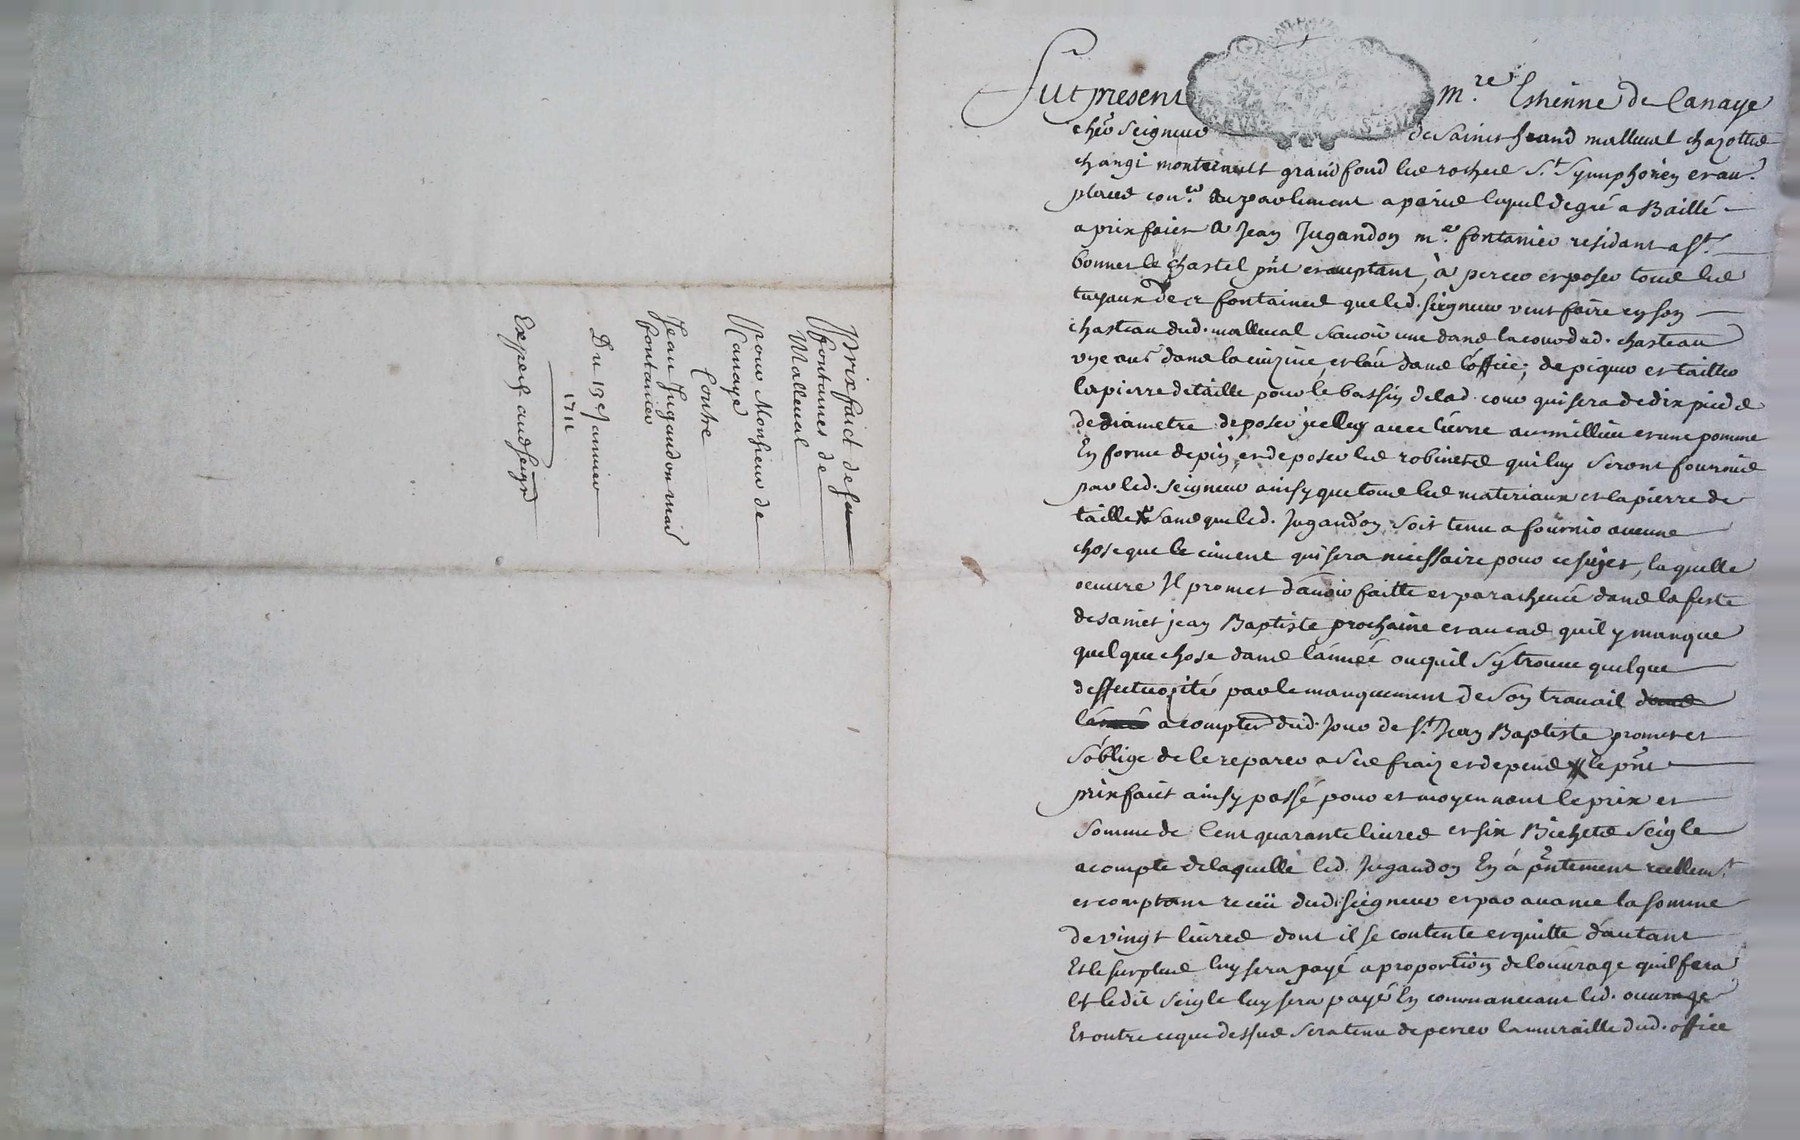 Prixfaict de sa
fontaines de
Malleual
pour Monsieur de
Canaye
Contre
Jean Jugandon mai
fontanier
Du 19e Januier
1711
Expedié aud seigr
Fut present mre. Estienne de Canaye
cher seigneur de Sainct heand malleual chazottes
changi monteinard grandfond les roches St. Symphorien et au.
places conr. au parlement a paris lequel de gré a Baillé
a prix faict a Jean Jugandon me. fontanier residant a St
bonnet le chastel pnt et aceptant, à percer et poser tous les
tuyaux de fontaines que led. seigneur veut faire en son
chasteau dud. malleual scauoir une dans la cour dud. chasteau
une autre dans la cuizine, et lau dans l'office; de piquer et tailler
la pierre de taille pour le bassin de lad. cour qui sera de dix pieds
de diametre de poser jcelluy auec au millieu et une pomme
En forme de pin, et de poser les robinets qui luy seront fournis
par led. seigneur ainsy que tous les materiaux et la pierre de
taille sans que led. Jugandon soit tenu a fournir aucune
chose que le ciment qui sera necessaire pour ce sujet, laquelle
oeuure Il promet d'auoir faitte et paracheuée dans la feste
de sainct jean Baptiste prochaine et au cas quil y manque
quelque chose dans l'année ou quil s'y trouue quelque
deffectuosités par le manquement de son travail dans
l'année a compter dud. jour de St. Jean Baptiste promet et
s'oblige de le reparer a ses fraiz et depens le pnt
prixfaict ainsy passé pour et moyennant le prix et
somme de Cent quarante liures et six Bichets seigle
a compte de laquelle led. Jugandon En a pntement reellemt.
et comptant receu dud. seigneur et par auance la somme
de vingt liures dont il se contente et quitte d'autant
Et le surplus luy sera payé a proportion de l'ouurage quil fera
Et ledit seigle luy sera payé En commancant led. ouurage
Et outre ce que dessus sera tenu de percer la muraille dud. office